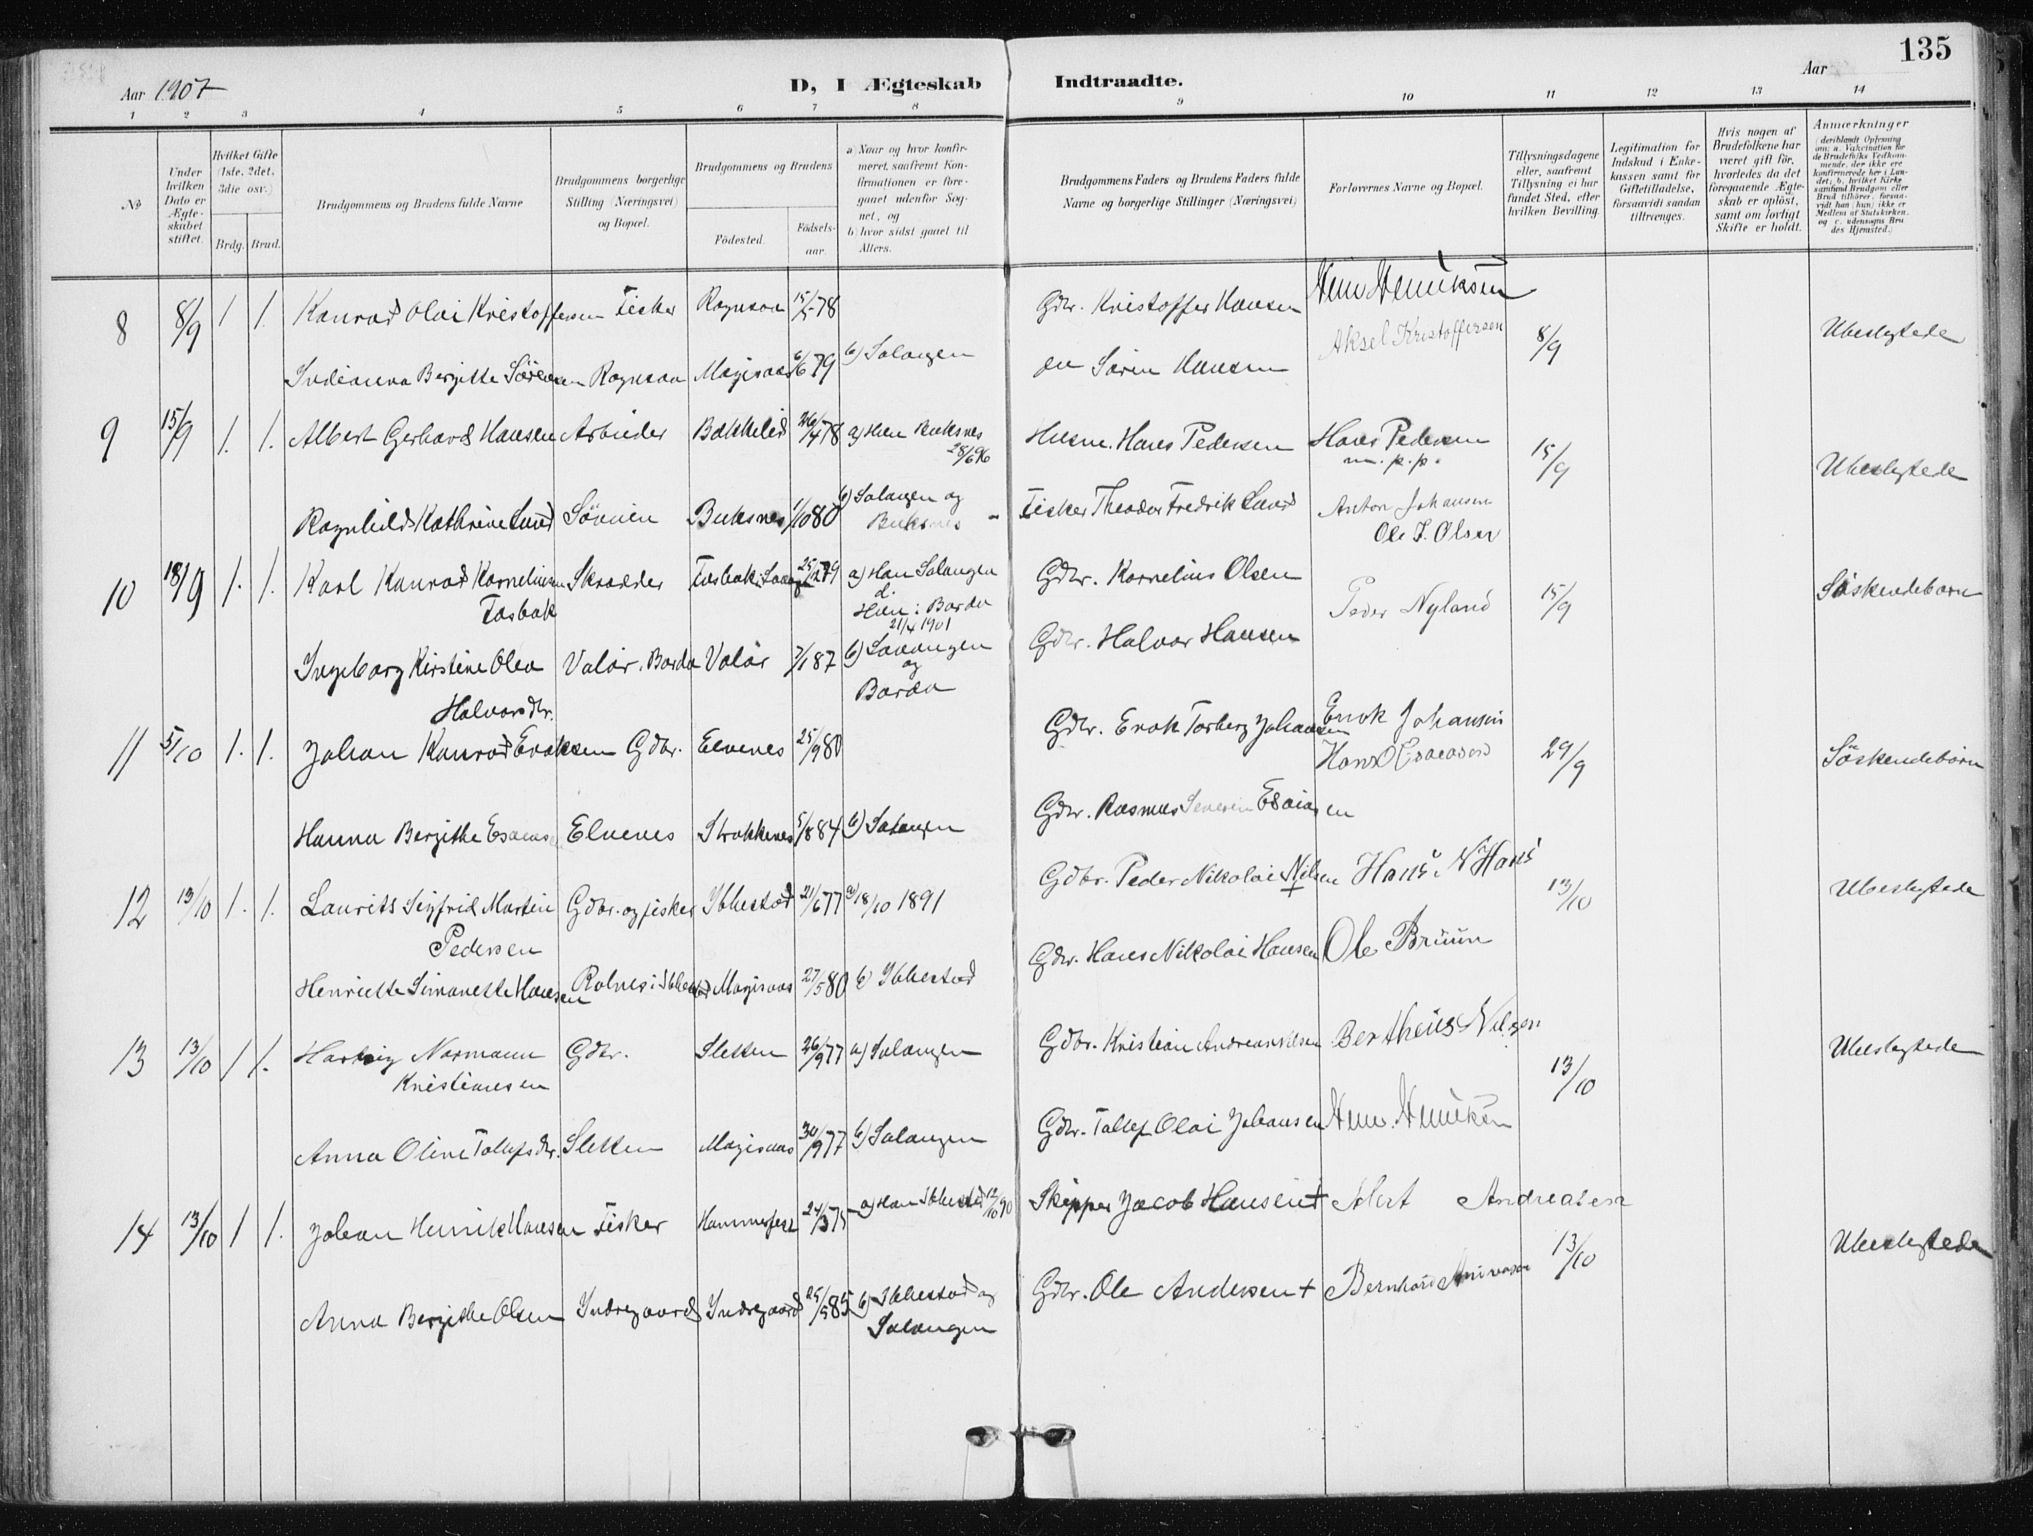 135
Aar 1907
D, I Ægteskab Indtraadte.
Aar
1 2 3 4 5 6 7 8 9 10 11 12 13 14
No
Under hvilken Dato er Ægteskabet stiftet.
Hvilket Gifte (1ste, 2det, 3die osv.)
Brdg. Brud.
Brudgommens og Brudens fulde Navne
Brudgommens borgerlige Stilling (Næringsvei) og Bopæl.
Brudgommens og Brudens
Fødested. Fødselsaar.
a) Naar og hvor konfirmeret, saafremt Konfirmationen er foregaaet udenfor Sognet, og
b) hvor sidst gaaet til Alters.
Brudgommens Faders og Brudens Faders fulde Navne og borgerlige Stillinger (Næringsvei)
Forlovernes Navne og Bopæl.
Tillysningsdagene eller, saafremt Tillysning ei har fundet Sted, efter hvilken Bevilling.
Legitimation for Indskud i Enkekassen samt for Giftetilladelse, forsaavidt saadan tiltrænges.
Hvis nogen af Brudefolkene har været gift før, hvorledes da det foregaaende Ægteskab er opløst, samt om lovligt Skifte er holdt.
Anmærkninger
(deriblandt Oplysning om: a. Vakcination for de Brudefolks Vedkommende, der ikke ere konfirmerede her i Landet; b. hvilket Kirkesamfund Brudgom eller Brud tilhører, forsaavidt han (hun) ikke er Medlem af Statskirken, og c. udensogns Brudes Hjemsted.)
8 8/9 1 1. Konrad Olai Kristoffersen Fisker Ragnsaa 15/5 78 Gdbr. Kristoffer Hansen
Aksel Kristoffersen 8/9 Ubeslegtede
Indianna Bergitte Sørensen Ragnsaa Magisaas 6/6 79 b) Salangen Søren Hansen
9 15/9 1. 1. Albert Gerhard Hansen Arbeider Bakkelid 26/4 78 a) Han Buksnes 28/6 96 Husm. Hans Pedersen Hans Pedersen
m. p. p. 15/9 Ubeslegtede
Ragnhild Kathrine Lund Søveien Buksnes 1/10 80 b) Salangen og Buksnes Fisker Theodor Fredrik Lund Anton Johansen
Ole J. Olsen
10 18/9 1. 1. Karl Konrad Korneliussen Skrædder Fosbak i Lavangen 25/12 79 a) Han Salangen Gdbr. Kornelius Olsen
Fosbak d. Hun i Bardu 21/4 1901 Peder Nyland 15/9 Søskendebørn
Ingeborg Kirstine Olea Valør. Bardu Valør 7/1 87 b) Lavangen og Bardu Gdbr. Halvor Hansen
Halvorsdtr.
11 5/10 1. 1. Johan Konrad Enoksen Gdbr. Elvenes 25/9 80 Gdbr. Enok Torberg Johansen Enok Johansen
Hans Esaiasen 29/9 Søskendebørn
Hanna Bergithe Esaiasen Elvenes Strokkenes 5/8 84 b) Salangen Gdbr. Rasmus Severin Esaiasen
12 13/10 1. 1. Laurits Sigfrid Martin Gdbr. og fisker Ibbestad 21/6 77 a) 18/10 1891 Gdbr. Peder Nikolai Nilsen + Hans N Hans
Pedersen 13/10 Ubeslegtede
Henriette Simonette Hansen Rolnes i Ibbestad Magisaas 27/5 80 b) Ibbestad Gdbr. Hans Nikolai Hansen Ole Bruun
13 13/10 1 1. Hartvig Normann Gdbr. Sletten 26/9 77 a) Salangen Gdbr. Kristian Andreas Nilsen Bertheus Nilsen
Kristiansen 13/10 Ubeslegtede
Anna Oline Tollefsdtr. Sletten Magisaas 30/9 77 b) Salangen Gdbr. Tollef Olai Johansen
14 13/10 1 1. Johan Henrik Hansen Fisker Hammerfest 24/3 75 a) Han Ibbestad 12/10 90 Skipper Jacob Hansen + Andreasen
13/10 Ubeslegtede
Anna Bergithe Olsen Indregaard Indregaard 25/5 85 b) Ibbestad og Salangen Gdbr. Ole Andersen + Bernhard